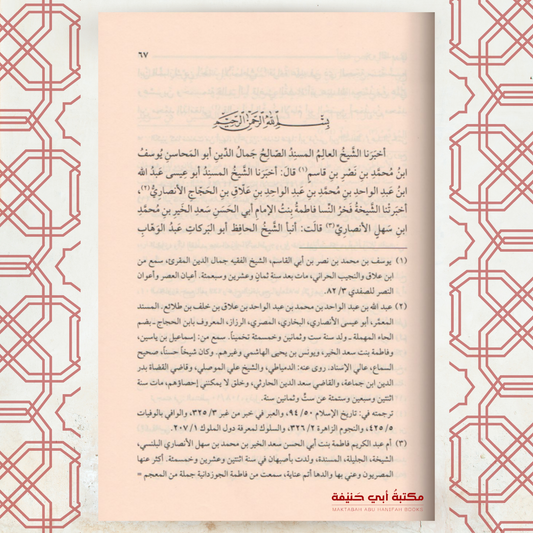 ٦٧
بِسْمِ اللَّهِ الرَّحْمَنِ الرَّحِيمِ
أخبَرَنا الشَّيخُ العالِمُ المسنِدُ الصَّالِحُ جَمالُ الدِّينِ أبو المَحاسنِ يُوسفُ
ابنُ مُحمَّدِ بنِ نَصْرِ بنِ قاسمٍ(١) قالَ: أخبَرَنا الشَّيخُ المسنِدُ أبو عِيسى عَبدُ الله
ابنُ عَبدِ الواحدِ بنِ مُحمَّدِ بنِ عَبدِ الواحِدِ بنِ عَلَّاقِ بنِ الحَجّاجِ الأنصاريُّ(٢)،
أخبَرَتْنا الشَّيخةُ فَخرُ النِّسا فاطمةُ بِنْتُ الإمامِ أبي الحَسَنِ سَعدِ الخَيرِ بنِ مُحمَّدِ
ابنِ سَهلٍ الأنصاريِّ(٣) قالَت: أنبأَ الشَّيخُ الحافِظُ أبو البَركاتِ عَبدُ الوَهّابِ
(١) يوسف بن محمد بن نصر بن أبي القاسم، الشيخ الفقيه جمال الدين المقرئ، سمع من
ابن علاق والنجيب الحراني، مات بعد سنة ثمانٍ وعشرين وسبعمئة. أعيان العصر وأعوان
النصر للصفدي ٣/ ٨٢.
(٢) عبد الله بن عبد الواحد بن محمد بن عبد الواحد بن علاق بن خلف بن طلائع، المسند
المعمَّر، أبو عيسى الأنصاري، البخاري، المصري، الرزاز، المعروف بابن الحجاج ـ بضم
الحاء المهملة ـ ولد سنة ست وثمانين وخمسمئة تخميناً. سمع من: إسماعيل بن ياسين،
وفاطمة بنت سعد الخير، ويونس بن يحيى الهاشمي وغيرهم. وكان شيخاً حسناً، صحيح
السماع، عالي الإسناد. روى عنه: الدمياطي، والشيخ علي الموصلي، وقاضي القضاة بدر
الدين ابن جماعة، والقاضي سعد الدين الحارثي، وخلق لا يمكنني إحصاؤهم، مات سنة
اثنتين وسبعين وستمئة عن ستٍّ وثمانين سنة.
ترجمته في: تاريخ الإسلام ٥٠/ ٩٤، والعبر في خبر من غبر ٣/ ٣٢٥، والوافي بالوفيات
٥/ ٤٢٥، والنجوم الزاهرة ٢/ ٣٢٦، والسلوك لمعرفة دول الملوك ١/ ٢٠٧.
(٣) أم عبد الكريم فاطمة بنت أبي الحسن سعد الخير بن محمد بن سهل الأنصاري البلنسي،
الشيخة، الجليلة، المسندة، ولدت بأصبهان في سنة اثنتين وعشرين وخمسمئة. أكثر عنها
المصريون وعني بها والدها أتم عناية، سمعت من فاطمة الجوزدانية جملة من المعجم =
مكتبة أبي حنيفة
MAKTABAH ABU HANIFAH BOOKS